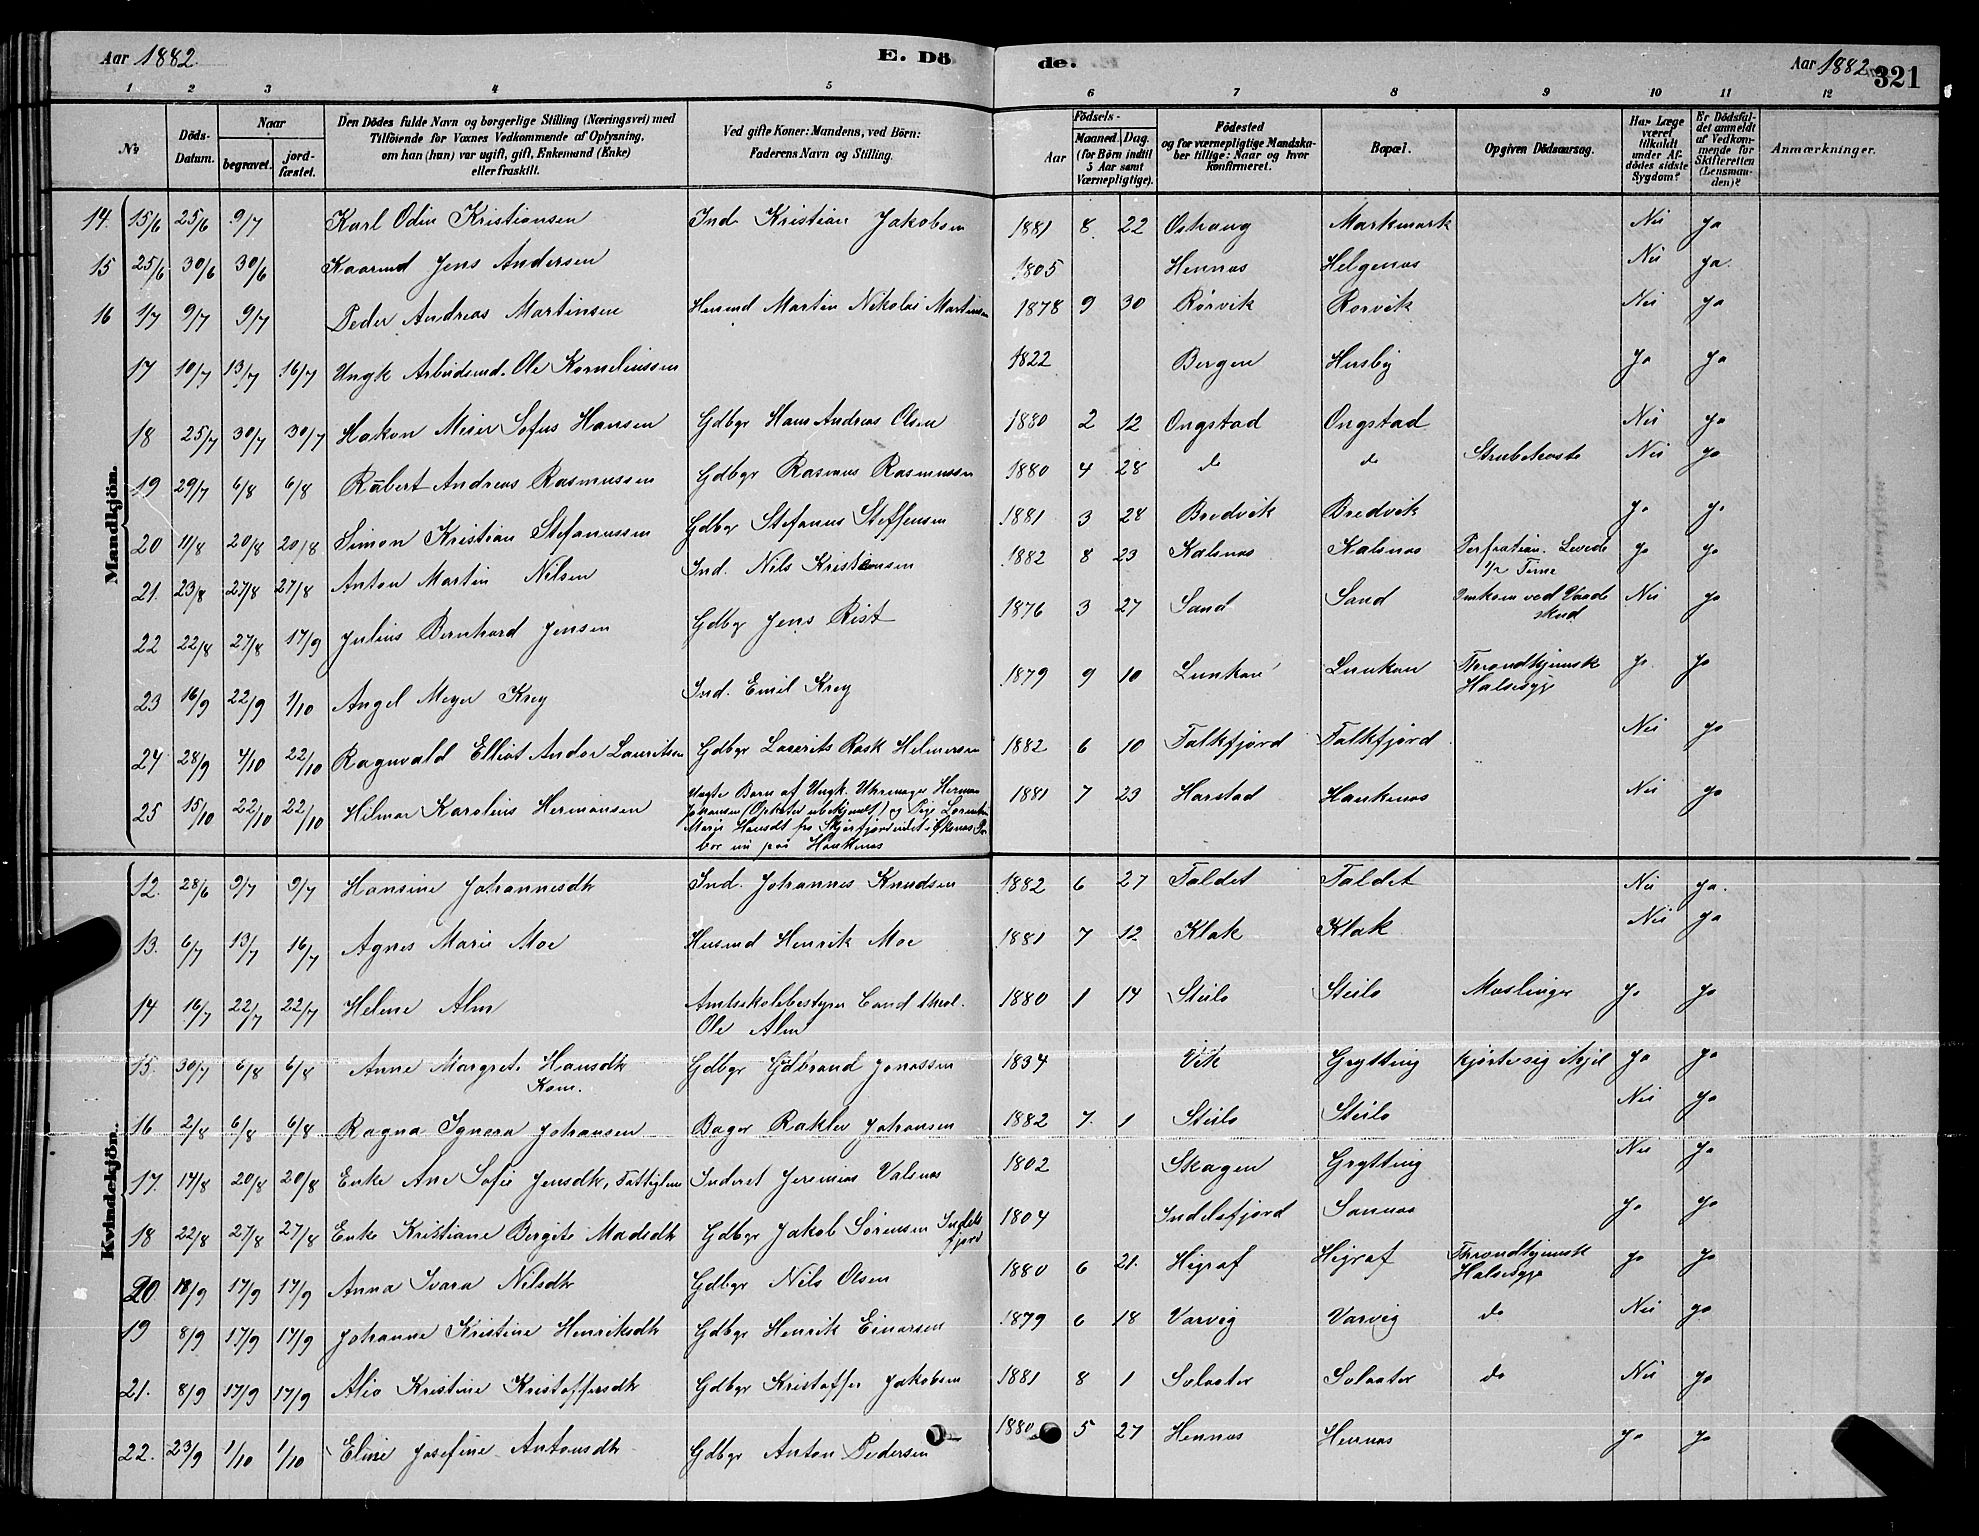 Aar 1882. E. Dö de. Aar 1882 321
1 2 3 4 5 6 7 8 9 10 11 12
No
Döds-Datum.
Naar
begravet.
jord-fæstet.
Den Dödes fulde Navn og borgerlige Stilling (Næringsvei) med
Tilföiende for Voxnes Vedkommende af Oplysning,
om han (hun) var ugift, gift, Enkemand (Enke)
eller fraskilt.
Ved gifte Koner: Mandens, ved Börn:
Faderens Navn og Stilling.
Födsels-
Aar
Maaned. Dag.
(for Börn indtil
5 Aar samt
Værnepligtige).
Födested
og for værnepligtige Mandska-
ber tillige: Naar og hvor
konfirmeret.
Bopæl.
Opgiven Dödsaarsag.
Har Læge
været
tilkaldt
under Af-
dödes sidste
Sygdom?
Er Dödsfal-
det anmeldt
af Vedkom-
mende for
Skifteretten
(Lensman-
den)?
Anmærkninger.
Mandkjön.
14. 15/6 25/6 9/7 Karl Odin Kristiansen Ind. Kristian Jakobsen 1881 8 22 Oshaug Markmark Nei ja
15 25/6 30/6 30/6 Kaarmd Jens Andersen 1805 Hennas Helgenas Nei ja.
16 1/7 9/7 9/7 Peder Andreas Martinsen Husmd Martin Nikolai Martinsen 1878 9 30 Rörvik Rorvik Nei ja
17 10/7 13/7 16/7 Ungk Arbeidsmd. Ole Korneliussen 1822 Bergen Husby ja ja
18 25/7 30/7 30/7 Hakon Meier Sofus Hansen Gdbgr Hans Andreas Olsen 1880 2 12 Ongstad Ongstad Nei ja
19 29/7 6/8 6/8 Robert Andreas Rasmussen Gdbgr Rasmus Rasmussen 1880 4 28 do do Strubehoste Nei ja
20 11/8 20/8 20/8 Simon Kristian Stefanussen Gdbgr Stefanus Steffensen 1881 3 28 Bredvik Bredvik ja ja
21. 23/8 27/8 27/8 Anton Martin Nilsen Ind. Nils Kristiansen 1882 8 23 Kalsnas Kalsnas Levede ja ja
1/2 Time
22 22/8 27/8 17/9 Julius Bernhard Jensen Gdbgr Jens Rist 1876 3 27 Sand Sand Omkom ved Vaade Nei ja
skud
23 16/9 22/9 1/10 Angel Meyer Krey Ind. Emil Krey 1879 9 10 Lunkan Lunkan Throndhjemsk ja ja
Halssyge
24 28/9 4/10 22/10 Ragnvald Elliot Andor Lauritsen Gdbgr Laurits Rask Helmersen 1882 6 10 Falkfjord Falkfjord Nei ja
25 15/10 22/10 22/10 Hilmar Karolius Hermansen Uægte Barn af Ungk. Uhrmager Herman 1881 7 23 Harstad Haukenas Nei ja
Johansen (Opholdst ubekjendt) og Pige
Marie fra Skjerfjorden
bor nu paa Haukenas
Kvindekjön.
12. 28/6 9/7 9/7 Hansine Johannesdtr Ind. Johannes Knudsen 1882 6 27 Faldet Faldet Nei ja.
13. 6/7 13/7 16/7 Agnes Marie Moe Husmd Henrik Moe 1881 7 12 Klak Klak Nei ja
14 16/7 22/7 22/7 Helene Alm Amtsskolebestyrer Cand theol. 1880 1 14 Steilo Steilo Meslinger ja ja
Ole Alm
15. 30/7 6/8 6/8 Anne Margret. Hansdtr Gdbgr Gdbrand Jonassen 1834 Vik Grytting ja ja
Kone.
16 2/8 6/8 6/8 Ragna Ignara Johansen Bager Rakler Johansen 1882 7. 1 Steilo Steilo Nei ja
17. 14/8 20/8 20/8 Enke Ane Sofie Jensdtr, Fattiglem Inderst Jeremias Valsnas 1802 Skagen Grytting Nei ja
18 22/8 27/8 27/8 Enke Kristiane Bergite Madsdtr Gdbgr Jakob Sørensen Indels 1804 Indelsfjord Sannas ja ja
fjord
20. 18/9 17/9 17/9 Anna Ivara Nilsdtr Gdbgr Nils Olsen 1880 6 21. Higraf Higraf Throndhjemsk ja ja
Halssyge
19 8/9 17/9 17/9 Johanne Kristine Henriksdtr Gdbgr Henrik Einarsen 1879 6 18 Varvig Varvig do Nei ja
21. 8/9 17/9 17/9 Alio Kristine Kristoffersdtr Gdbgr Kristoffer Jakobsen 1881 8 1 Solsater Solsater do Nei ja
22. 23/9 1/10 1/10 Eline Josefine Antonsdtr Gdbgr Anton Pedersen 1880 5 27 Hennas Hennas ja ja